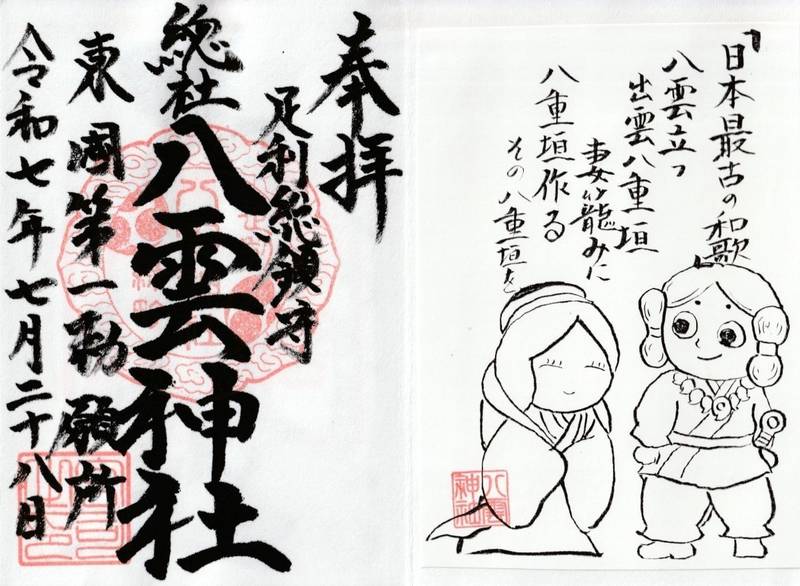 奉拝
足利総鎮守
総社
八雲神社
東国第一勅願所
令和七年七月二十八日
「日本最古の和歌」
八雲立つ
出雲八重垣
妻籠みに
八重垣作る
その八重垣を
八雲
神社